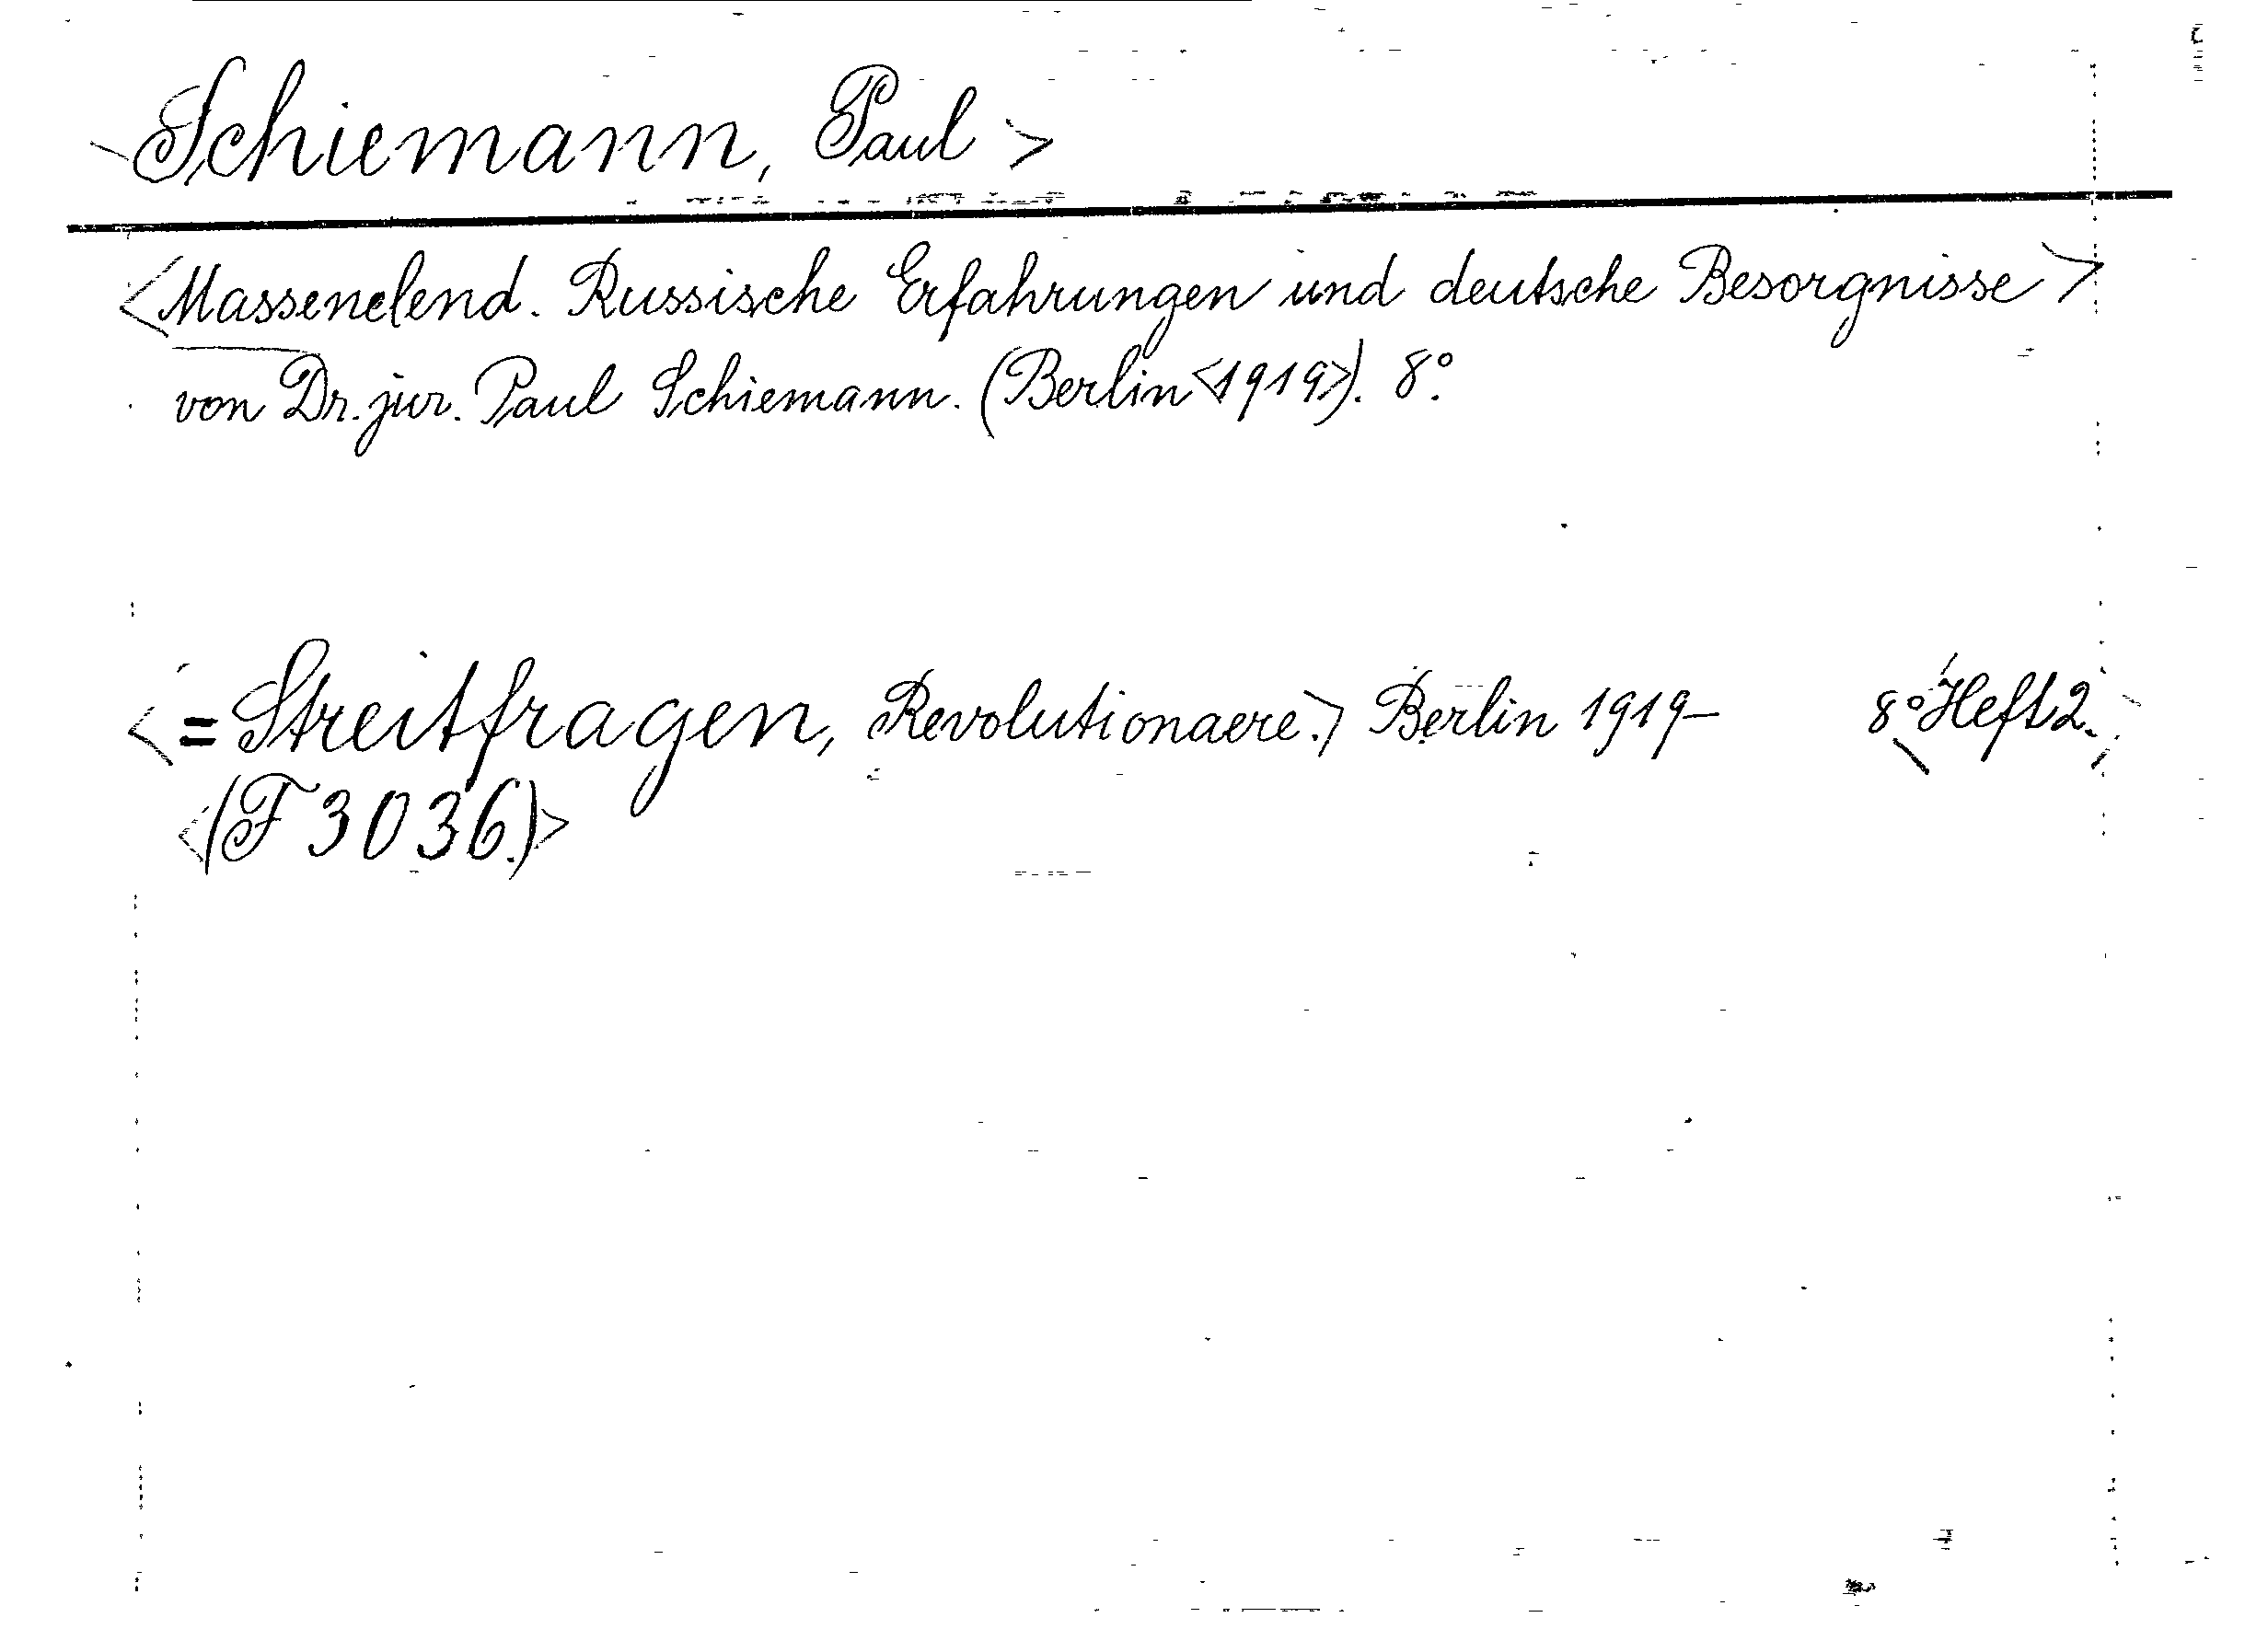 <Schiemann, Paul>
<Massenelend. Russische Erfahrungen und deutsche Besorgnisse>
von Dr. jur. Paul Schiemann. (Berlin <1919>). 8°.
<=Streitfragen, Revolutionaere.> Berlin 1919– 8° <Heft 2.>
<(F 3036)>